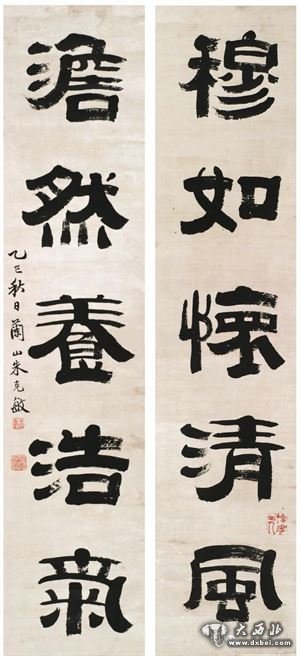 穆如懷清風
澹然養浩氣
乙巳秋日蘭山朱克敏
大西北
www.dxbei.com